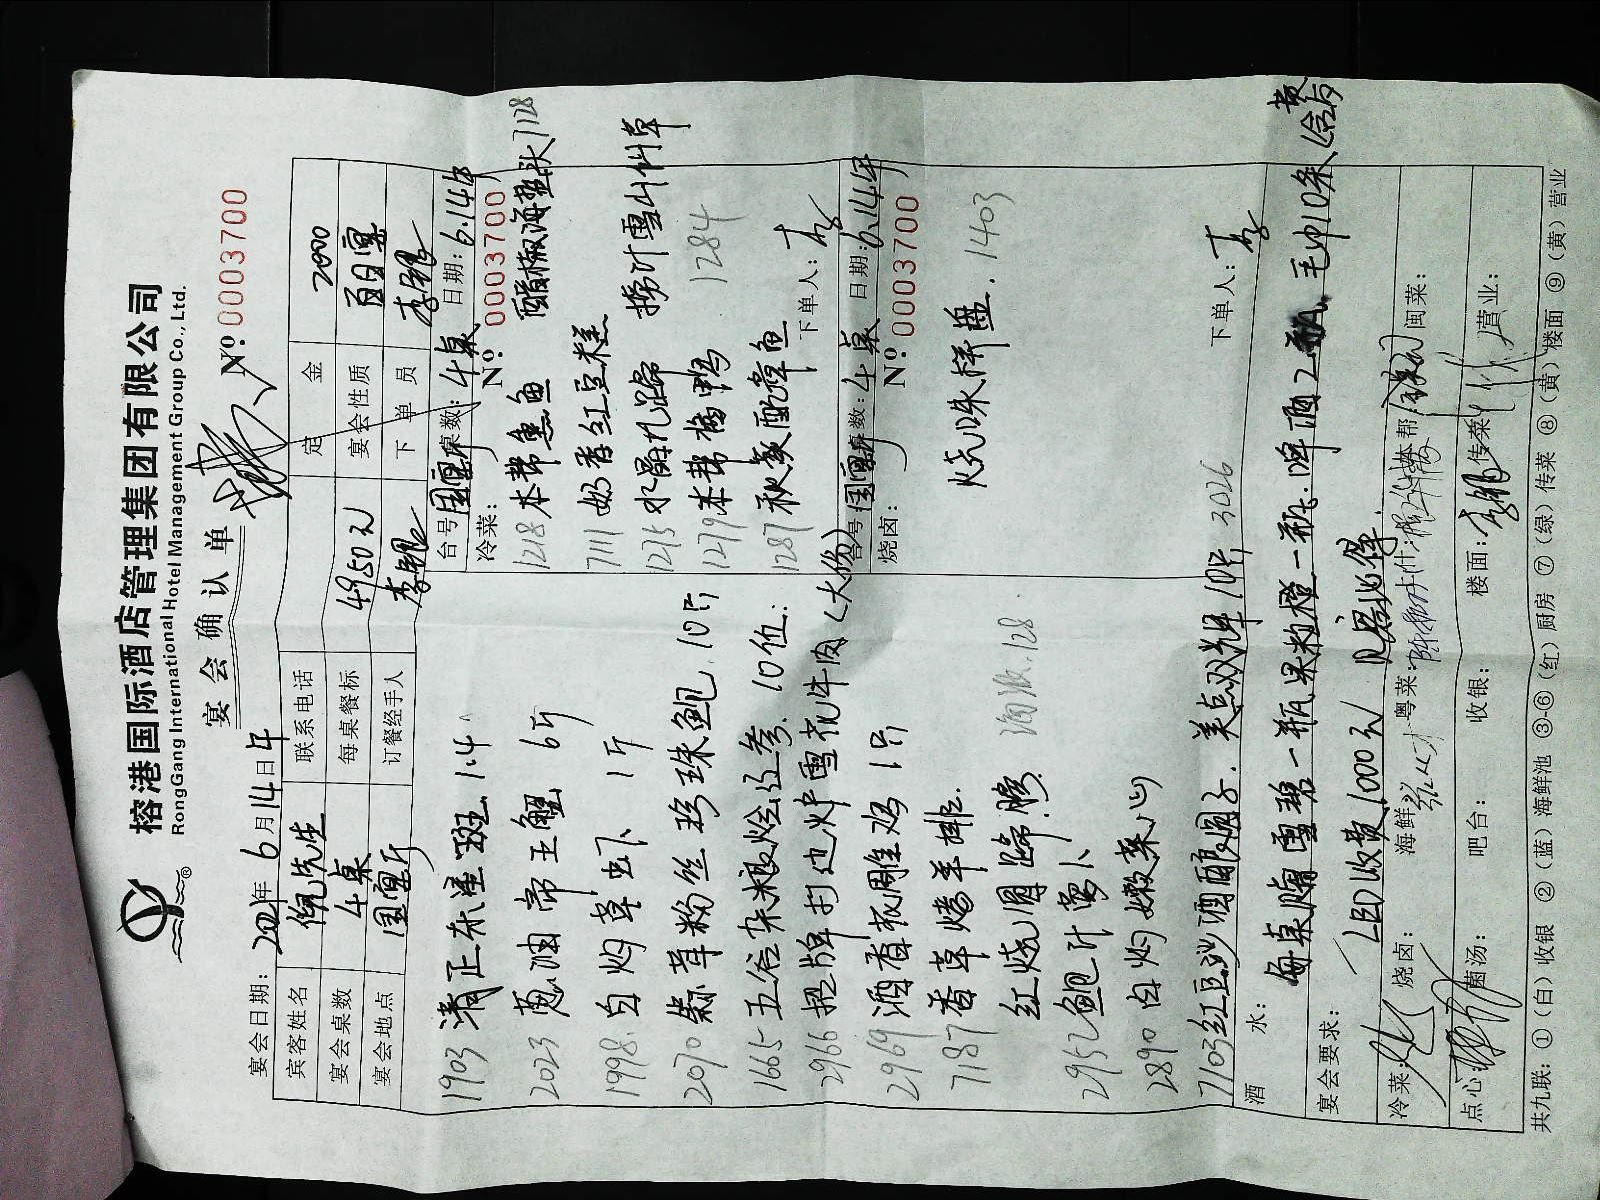 榕港国际酒店管理集团有限公司
RongGang International Hotel Management Group Co., Ltd.
宴会确认单
Nº:0003700
宴会日期: 2021年 6月14日
宾客姓名 倪先生 联系电话 定金 2000
宴会桌数 4桌 每桌餐标 4950元 宴会性质 百日宴
宴会地点 国宴厅 订餐经手人 下单员
1903 清正东星斑 1.4
2023 葱油帝王蟹 6斤
1998 白灼草虾 1斤
2070 粉丝珍珠鲍 10只
1665 五谷杂粮烩辽参 10位
2966 招牌打边炉雪花牛肉(大份)
2969 酒香 鸡 1只
7187 香草烤羊排
红烧圆蹄膀 128
2952 鲍汁萝卜
2890 白灼嫩菜心
7103 红豆沙酒酿圆子. 美点双辉 10片 3026
台号 国宴厅 桌数: 4桌 日期: 6.14
Nº 0003700
冷菜:
1218 本帮熏鱼
海蜇头 7128
7111 奶香红豆糕
1275 水晶
捞汁雪山
1279 本帮酱鸭
1284
1287 秋葵配章鱼
下单人:
台号 国宴厅 桌数: 4桌 日期: 6.14
Nº 0003700
烧卤:
烧味拼盘. 1403
下单人:
酒水: 每桌 雪碧一瓶果粒橙一瓶. 啤酒2瓶. 毛巾10条
宴会要求: LED收费1000元
冷菜: 烧卤: 海鲜 粤菜: 本帮 闽菜:
点心: 菌汤: 吧台: 收银: 楼面: 传菜 营业:
共九联: ①(白)收银 ②(蓝)海鲜池 ③-⑥(红)厨房 ⑦(绿)传菜 ⑧(黄)楼面 ⑨(黄)营业